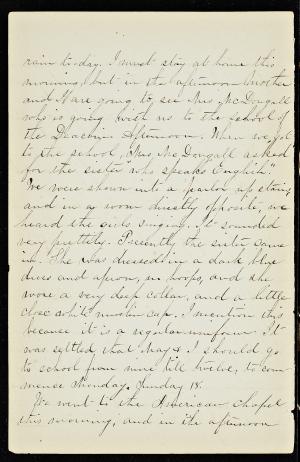 rain to-day. I must stay at home this
morning, but in the afternoon Mother
and I are going to see Mrs McDougall
who is going with us to the school of
the Deaconic Afternoon. When we got
to the school, Mrs McDougall asked
for the sister who speaks English".
We were shown into a parlor up stairs
and in a room directly opposite, we
heard the girls singing. It sounded
very prettily. Presently the sister came
in. She was dressed in a dark blue
dress and apron, no hoops, and she
wore a very deep collar, and a little
close white muslin cap. I mention this
because it is a regular uniform. It
was settled that May & I should go
to school from nine till twelve, to com-
mence Monday. Sunday 18.
We went to the American chapel
this morning, and in the afternoon